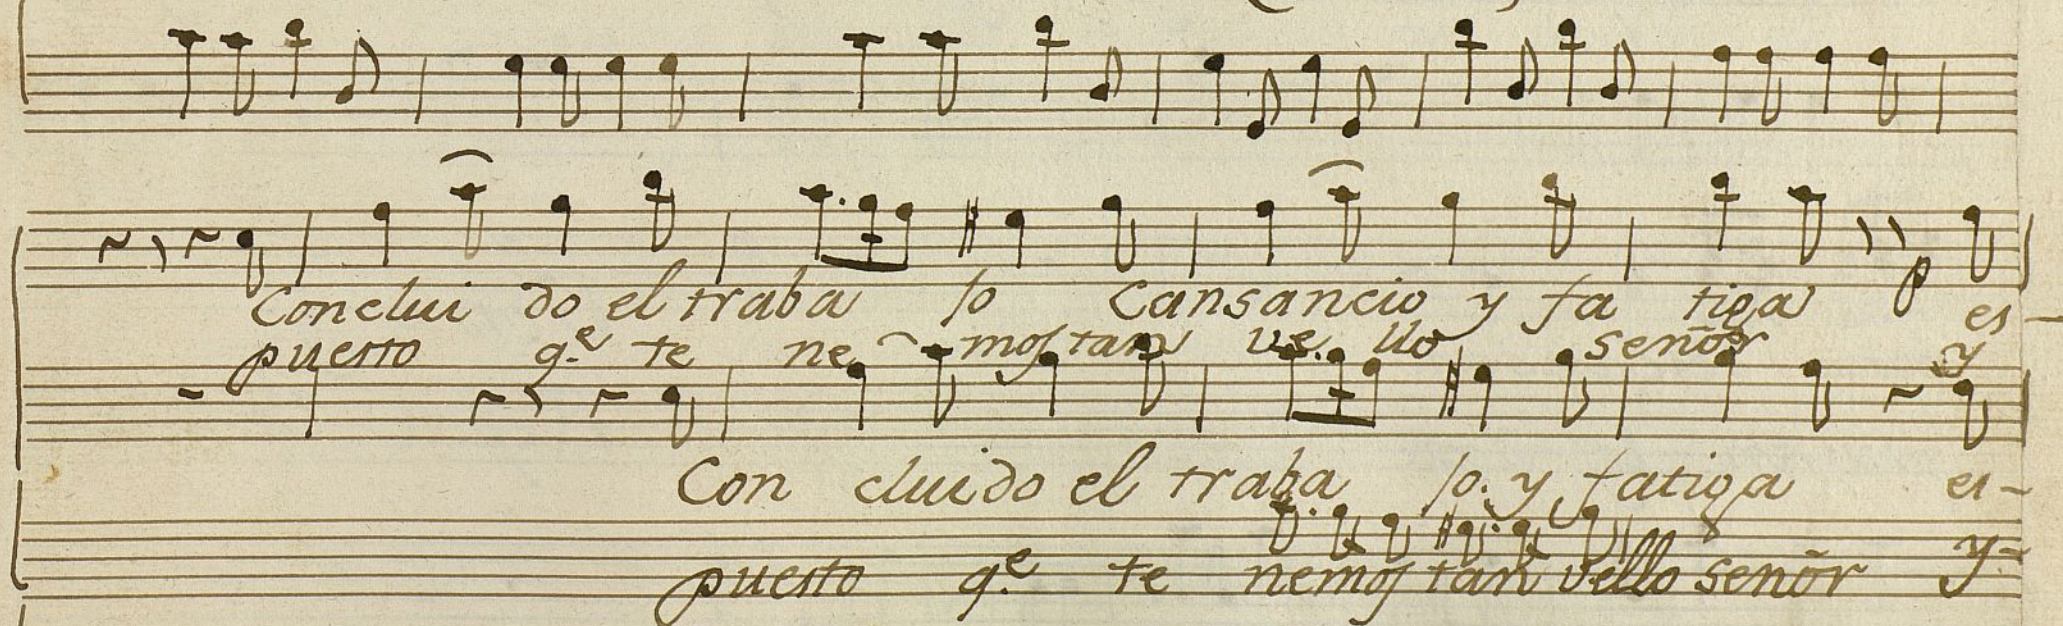 Conclui do el traba Jo Cansancio y fa tiga es
puesto q.e te ne mos tan ve llo señor y
Con cluido el traba Jo. y fatiga es-
puesto q.e te nemos tan vello señor y-